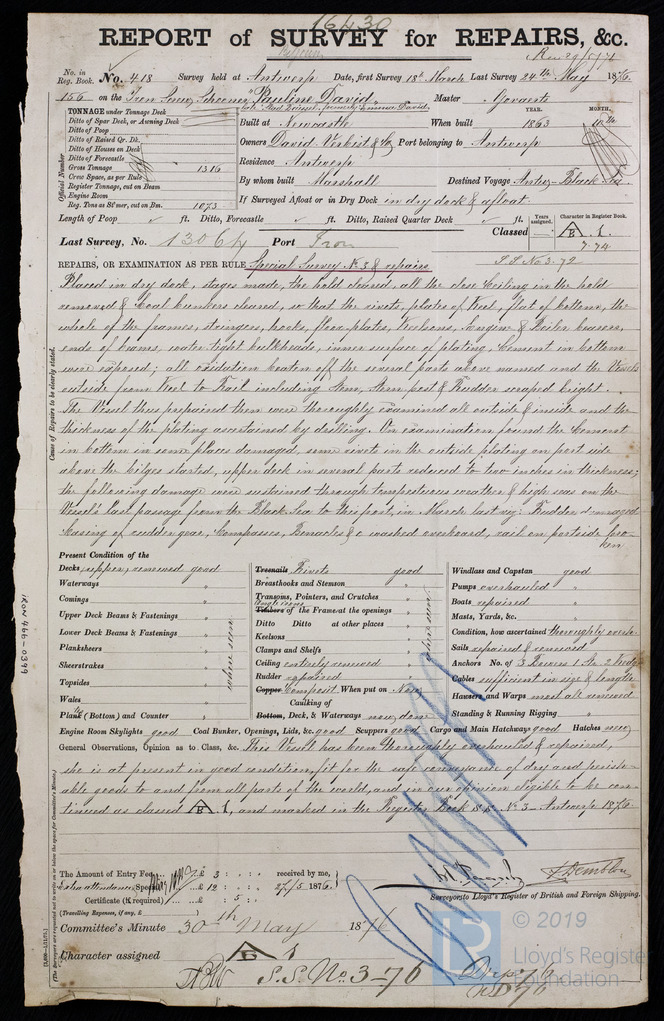 16430
REPORT of SURVEY for REPAIRS, &c.
No. in Reg. Book. No. 418 Survey held at Antwerp Date, first Survey 18th March Last Survey 24th May 1876
156 on the Iron Screw Schooner "Pauline David" Master Govaerts
TONNAGE under Tonnage Deck
Ditto of Spar Deck, or Awning Deck
Ditto of Poop
Ditto of Raised Qr. Dk.
Ditto of Houses on Deck
Ditto of Forecastle
Gross Tonnage 1316
Crew Space, as per Rule
Register Tonnage, cut on Beam
Engine Room
Reg. Tons as St'mer, cut on Bm. 1073
Official Number
YEAR. MONTH.
Built at Newcastle When built 1863
Owners David Verbist & Co Port belonging to Antwerp
Residence Antwerp
By whom built Marshall Destined Voyage Antw-Black Sea
If Surveyed Afloat or in Dry Dock in dry dock & afloat.
Length of Poop ft. Ditto, Forecastle ft. Ditto, Raised Quarter Deck ft.
Years assigned. Character in Register Book.
Last Survey, No. Port Iron Classed B 1.
7.74
REPAIRS, OR EXAMINATION AS PER RULE Special Survey No 3 & repairs
S S No 3-72
Placed in dry dock, stages made, the hold cleared, all the close Ceiling in the hold
removed & Coal bunkers cleared, so that the rivets, plates of Keel, flat of bottom, the
whole of the frames, stringers, hooks, floor plates, Keelsons, Engine & Boiler bearers,
ends of beams, water tight bulkheads, inner surface of plating, Cement in bottom
were exposed; all oxidation beaten off the several parts above named and the Vessels
outside from Keel to Rail including Stem, Stern post & Rudder scraped bright.
The Vessel thus prepared them were thoroughly examined all outside & inside and the
thickness of the plating ascertained by drilling. On examination found the Cement
in bottom in some places damaged, some rivets in the outside plating on port side
above the bilges started, upper deck in several parts reduced to two inches in thickness;
the following damage were sustained through tempestuous weather & high seas on the
Vessels last passage from the Black Sea to this port, in March last viz: Rudder damaged
casing of rudder gear, Compasses, Benacles &c washed overboard, rail on port side bro-
ken
Causes of Repairs to be clearly stated.
Present Condition of the
Decks upper, renewed good
Waterways "
Comings "
Upper Deck Beams & Fastenings "
Lower Deck Beams & Fastenings "
Planksheers "
Sheerstrakes "
Topsides "
Wales "
Plank (Bottom) and Counter "
where seen
Treenails Rivets good
Breasthooks and Stemson "
Transoms, Pointers, and Crutches "
Timbers of the Frame at the openings "
Ditto Ditto at other places "
Keelsons "
Clamps and Shelfs "
Ceiling entirely renewed "
Rudder repaired "
Copper Composit. When put on Now
Caulking of
Bottom, Deck, & Waterways now done
where seen
Windlass and Capstan good
Pumps overhauled "
Boats repaired "
Masts, Yards, &c. "
Condition, how ascertained
Sails repaired & renewed "
Anchors No. of 3 Bowers
Cables sufficient in size & length
Hawsers and Warps most all renewed
Standing & Running Rigging "
Engine Room Skylights good Coal Bunker, Openings, Lids, &c. good Scuppers good Cargo and Main Hatchways good Hatches new
General Observations, Opinion as to Class, &c. This Vessel has been thoroughly overhauled & repaired,
she is at present in good condition, fit for the safe conveyance of dry and perish-
able goods to and from all parts of the world, and in our opinion eligible to be con-
tinued as classed B 1, and marked in the Register Book S.S. No 3 Antwerp 1876
The Amount of Entry Fee £ 3 : : received by me,
Extra attendance Special £ 12 : : 27/5 1876.
Certificate (if required) £ : 5 :
(Travelling Expenses, if any, £ )
Surveyors to Lloyd's Register of British and Foreign Shipping.
Committee's Minute 30th May 1876
Character assigned B 1
S.S. No 3-76
IRON 466-0399
© 2019
Lloyd's Register
Foundation